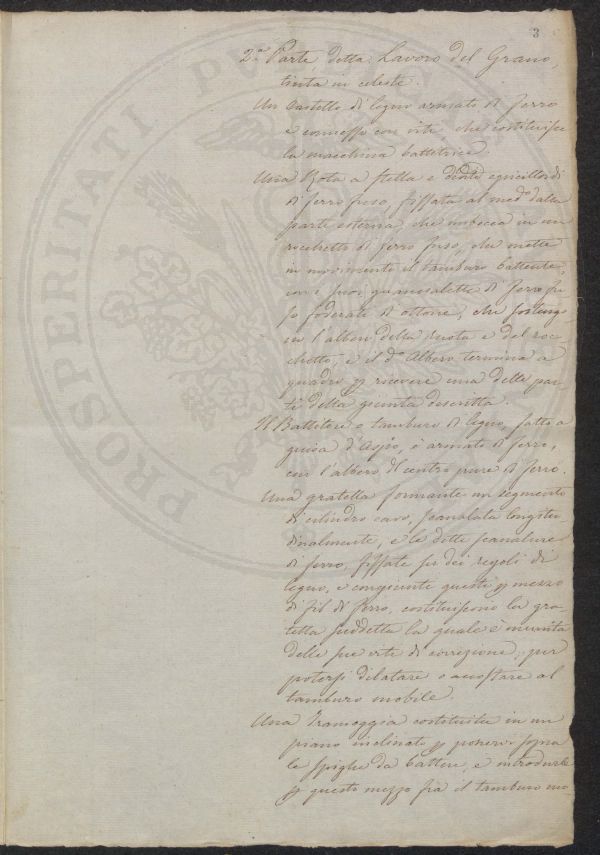 3
2.a Parte, detta: Lavoro del Grano,
tinta in celeste.
Un Castello di legno armato di ferro
e connesso con vite, che costituisce
la macchina battitrice.
Una Rota a stella e denti
di ferro fuso, fissata al med.o dalla
parte esterna, che imbocca in un
rocchetto di ferro fuso, che mette
in movimento il tamburo battente,
con i suoi guancialetti di ferro fu-
so foderati di ottone, che sostengo-
no l'alberi della ruota e del roc-
chetto; e il d.o Albero termina a
quadro p ricevere una delle par-
ti della giunta descritta.
Il Battitore o tamburo di legno, fatto a
guisa d'Aspo, è armato di ferro,
con l'albero di centro pure di ferro.
Una gratella formante un segmento
di cilindro cavo, scanalata longitu-
dinalmente, e le dette scanalature
di ferro, fissate su dei regoli di
legno, e congiunte queste p mezzo
di fil di ferro, costituiscono la gra-
tella suddetta la quale è munita
delle sue vite di correzione, per
potersi dilatare o accostare al
tamburo mobile.
Una Tramoggia costituita in un
piano inclinato p ponervi sopra
le spighe da battere, e introdurle
p questo mezzo fra il tamburo mo-
PROSPERITATI PVBLICAE